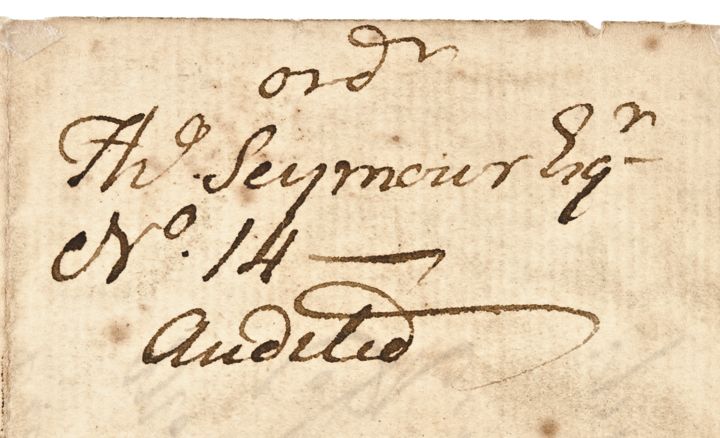 ordr
Tho. Seymour Esqr
No. 14
Audited